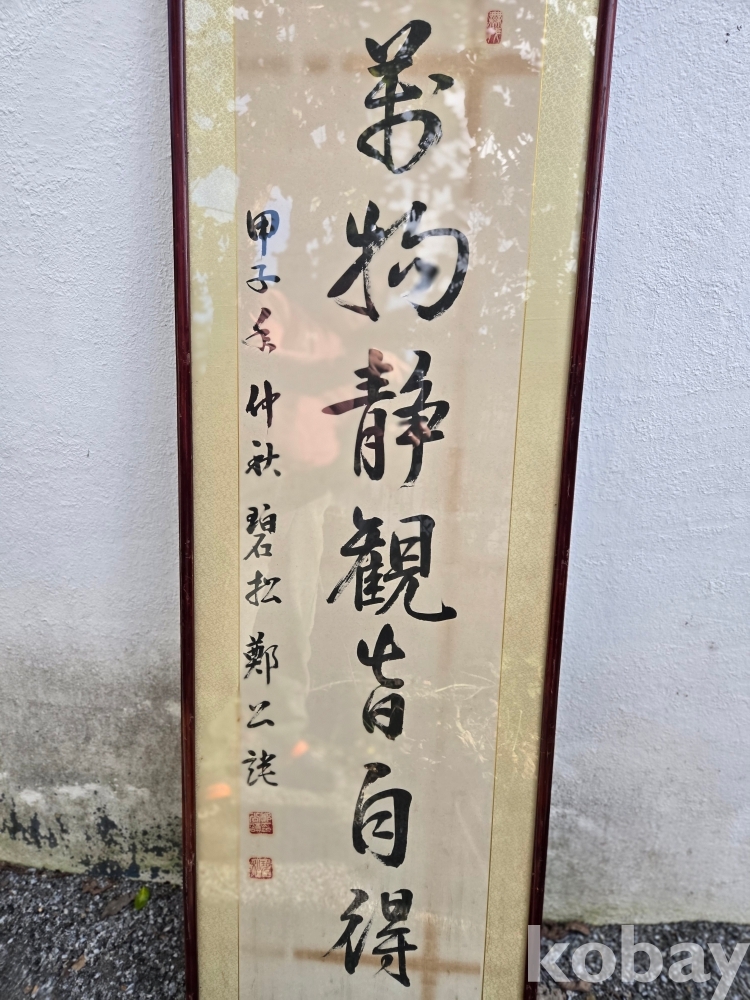 萬物静観皆自得
甲子秊仲秋 碧松 鄭公
kobay